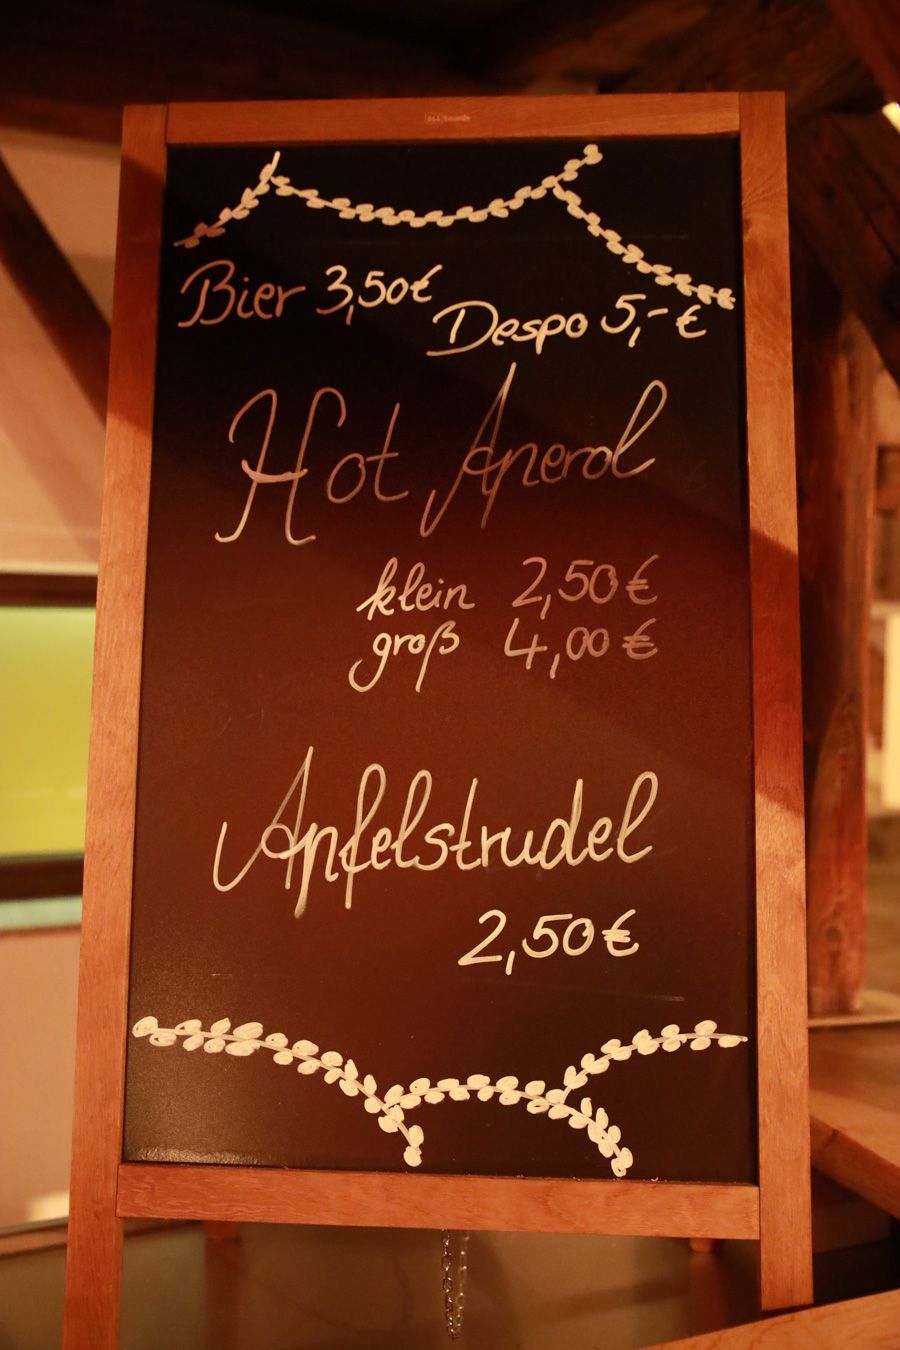 Bier 3,50€
Despo 5,- €
Hot Aperol
klein 2,50€
groß 4,00€
Apfelstrudel
2,50€